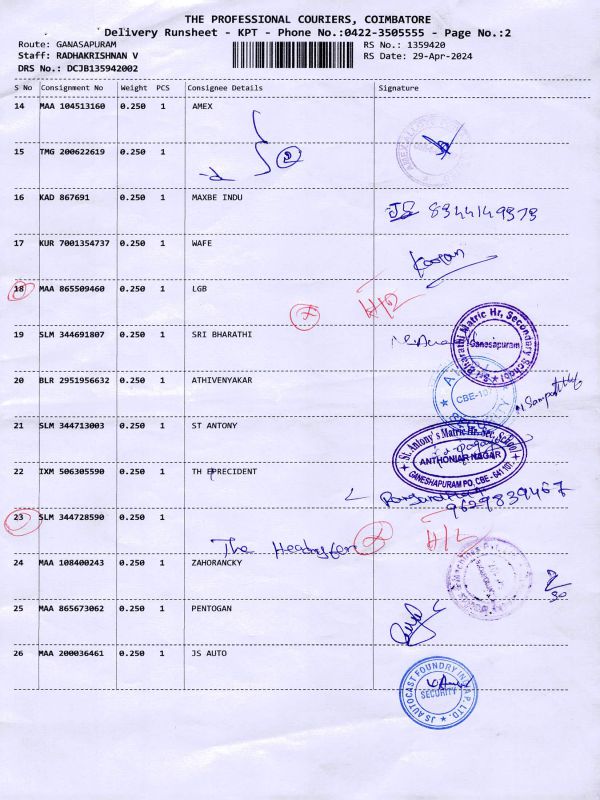 THE PROFESSIONAL COURIERS, COIMBATORE
Delivery Runsheet - KPT - Phone No.:0422-3505555 - Page No.:2
Route: GANASAPURAM RS No.: 1359420
Staff: RADHAKRISHNAN V RS Date: 29-Apr-2024
DRS No.: DCJB135942002
S No Consignment No Weight PCS Consignee Details Signature
14 MAA 104513160 0.250 1 AMEX
15 TMG 200622619 0.250 1
2
16 KAD 867691 0.250 1 MAXBE INDU
JS 8344149373
17 KUR 7001354737 0.250 1 WAFE
18 MAA 865509460 0.250 1 LGB
19 SLM 344691807 0.250 1 SRI BHARATHI
Sri Bharathi Matric Hr, Secondary School
Ganesapuram
20 BLR 2951956632 0.250 1 ATHIVENYAKAR
SECURITY
21 SLM 344713003 0.250 1 ST ANTONY
St. Antony's Matric Hr. Sec. School
ANTHONIAR NAGAR
GANESHAPURAM PO, CBE - 641 107.
22 IXM 506305590 0.250 1 TH EPRECIDENT
9629839467
23 SLM 344728590 0.250 1
The
24 MAA 108400243 0.250 1 ZAHORANCKY
25 MAA 865673062 0.250 1 PENTOGAN
26 MAA 200036461 0.250 1 JS AUTO
JS AUTOCAST FOUNDRY INDIA P. LTD.
SECURITY